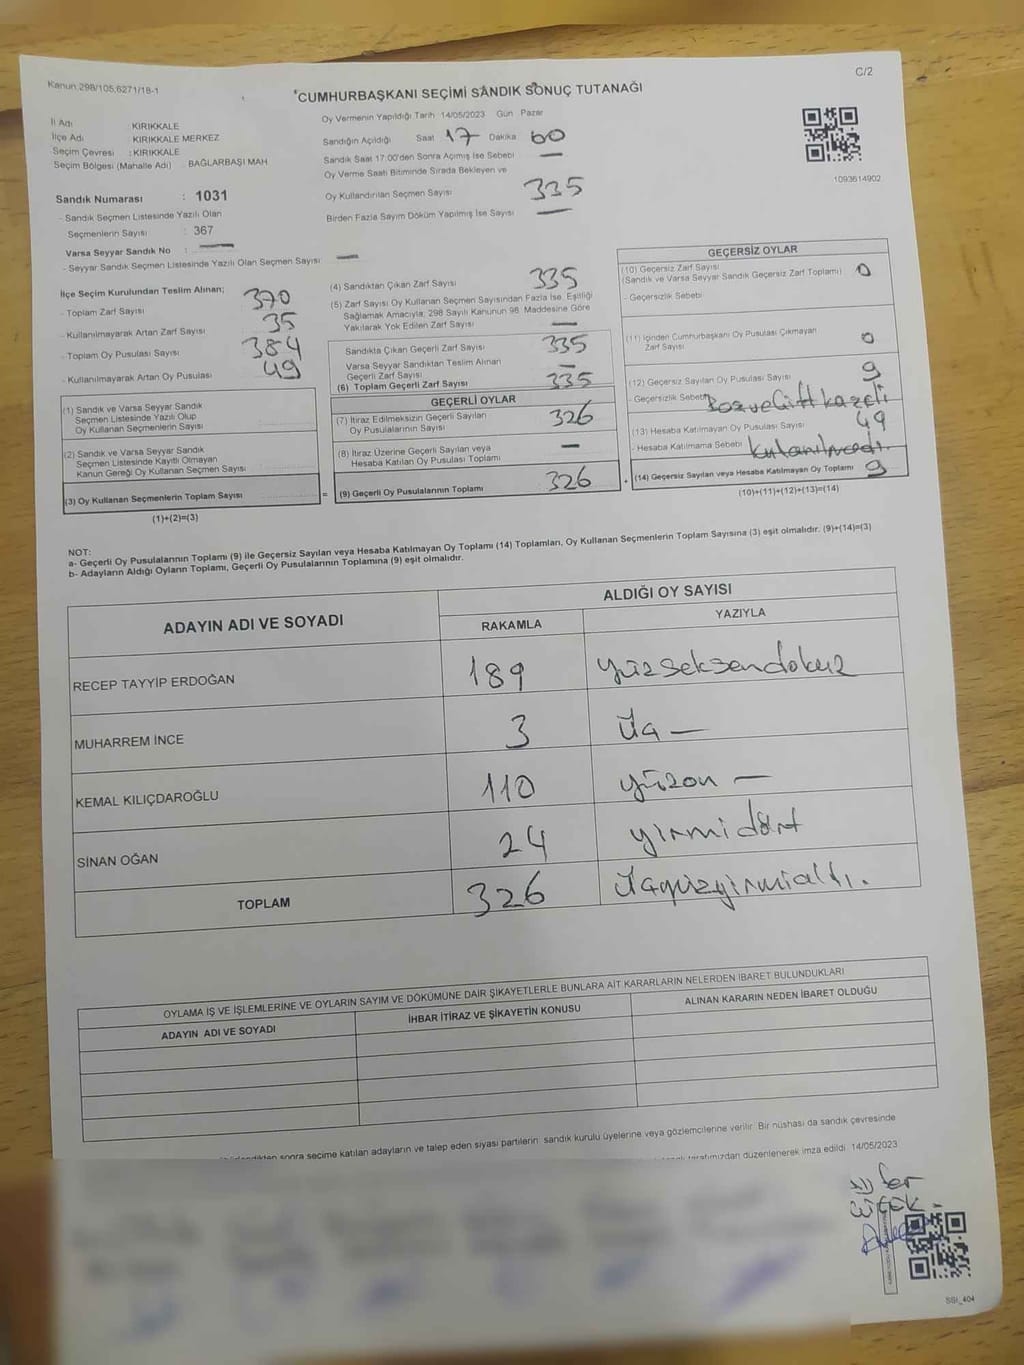 Kanun:298/105,6271/18-1
C/2
CUMHURBAŞKANI SEÇİMİ SANDIK SONUÇ TUTANAĞI
İl Adı : KIRIKKALE
İlçe Adı : KIRIKKALE MERKEZ
Seçim Çevresi : KIRIKKALE
Seçim Bölgesi (Mahalle Adı) : BAĞLARBAŞI MAH
Sandık Numarası : 1031
- Sandık Seçmen Listesinde Yazılı Olan
Seçmenlerin Sayısı : 367
Varsa Seyyar Sandık No :
- Seyyar Sandık Seçmen Listesinde Yazılı Olan Seçmen Sayısı
Oy Vermenin Yapıldığı Tarih 14/05/2023 Gün Pazar
Sandığın Açıldığı Saat 17 Dakika 60
Sandık Saat 17:00'den Sonra Açımış İse Sebebi —
Oy Verme Saati Bitiminde Sırada Bekleyen ve
Oy Kullandırılan Seçmen Sayısı 335
Birden Fazla Sayım Döküm Yapılmış İse Sayısı —
1093614902
İlçe Seçim Kurulundan Teslim Alınan;
- Toplam Zarf Sayısı 370
- Kullanılmayarak Artan Zarf Sayısı 35
- Toplam Oy Pusulası Sayısı 384
- Kullanılmayarak Artan Oy Pusulası 49
(1) Sandık ve Varsa Seyyar Sandık
Seçmen Listesinde Yazılı Olup
Oy Kullanan Seçmenlerin Sayısı
(2) Sandık ve Varsa Seyyar Sandık
Seçmen Listesinde Kayıtlı Olmayan
Kanun Gereği Oy Kullanan Seçmen Sayısı
(3) Oy Kullanan Seçmenlerin Toplam Sayısı
(1)+(2)=(3)
(4) Sandıktan Çıkan Zarf Sayısı 335
(5) Zarf Sayısı Oy Kullanan Seçmen Sayısından Fazla İse, Eşitliği
Sağlamak Amacıyla, 298 Sayılı Kanunun 98. Maddesine Göre
Yakılarak Yok Edilen Zarf Sayısı —
Sandıkta Çıkan Geçerli Zarf Sayısı 335
Varsa Seyyar Sandıktan Teslim Alınan
Geçerli Zarf Sayısı —
(6) Toplam Geçerli Zarf Sayısı 335
GEÇERLİ OYLAR
(7) İtiraz Edilmeksizin Geçerli Sayılan
Oy Pusulalarının Sayısı 326
(8) İtiraz Üzerine Geçerli Sayılan veya
Hesaba Katılan Oy Pusulası Toplamı —
= (9) Geçerli Oy Pusulalarının Toplamı 326
GEÇERSİZ OYLAR
(10) Geçersiz Zarf Sayısı
(Sandık ve Varsa Seyyar Sandık Geçersiz Zarf Toplamı) 0
- Geçersizlik Sebebi
(11) İçinden Cumhurbaşkanı Oy Pusulası Çıkmayan
Zarf Sayısı 0
(12) Geçersiz Sayılan Oy Pusulası Sayısı 9
- Geçersizlik Sebebi
(13) Hesaba Katılmayan Oy Pusulası Sayısı 49
- Hesaba Katılmama Sebebi
+ (14) Geçersiz Sayılan veya Hesaba Katılmayan Oy Toplamı 9
(10)+(11)+(12)+(13)=(14)
NOT:
a- Geçerli Oy Pusulalarının Toplamı (9) ile Geçersiz Sayılan veya Hesaba Katılmayan Oy Toplamı (14) Toplamları, Oy Kullanan Seçmenlerin Toplam Sayısına (3) eşit olmalıdır. (9)+(14)=(3)
b- Adayların Aldığı Oyların Toplamı, Geçerli Oy Pusulalarının Toplamına (9) eşit olmalıdır.
ADAYIN ADI VE SOYADI
ALDIĞI OY SAYISI
RAKAMLA YAZIYLA
RECEP TAYYİP ERDOĞAN 189 yüzseksendokuz
MUHARREM İNCE 3 üç —
KEMAL KILIÇDAROĞLU 110 yüzon —
SİNAN OĞAN 24 yirmidört
TOPLAM 326 üçyüzyirmialtı.
OYLAMA İŞ VE İŞLEMLERİNE VE OYLARIN SAYIM VE DÖKÜMÜNE DAİR ŞİKAYETLERLE BUNLARA AİT KARARLARIN NELERDEN İBARET BULUNDUKLARI
ADAYIN ADI VE SOYADI İHBAR İTİRAZ VE ŞİKAYETİN KONUSU ALINAN KARARIN NEDEN İBARET OLDUĞU
sonra seçime katılan adayların ve talep eden siyasi partilerin sandık kurulu üyelerine veya gözlemcilerine verilir. Bir nüshası da sandık çevresinde
tarafımızdan düzenlenerek imza edildi. 14/05/2023
SGI_404